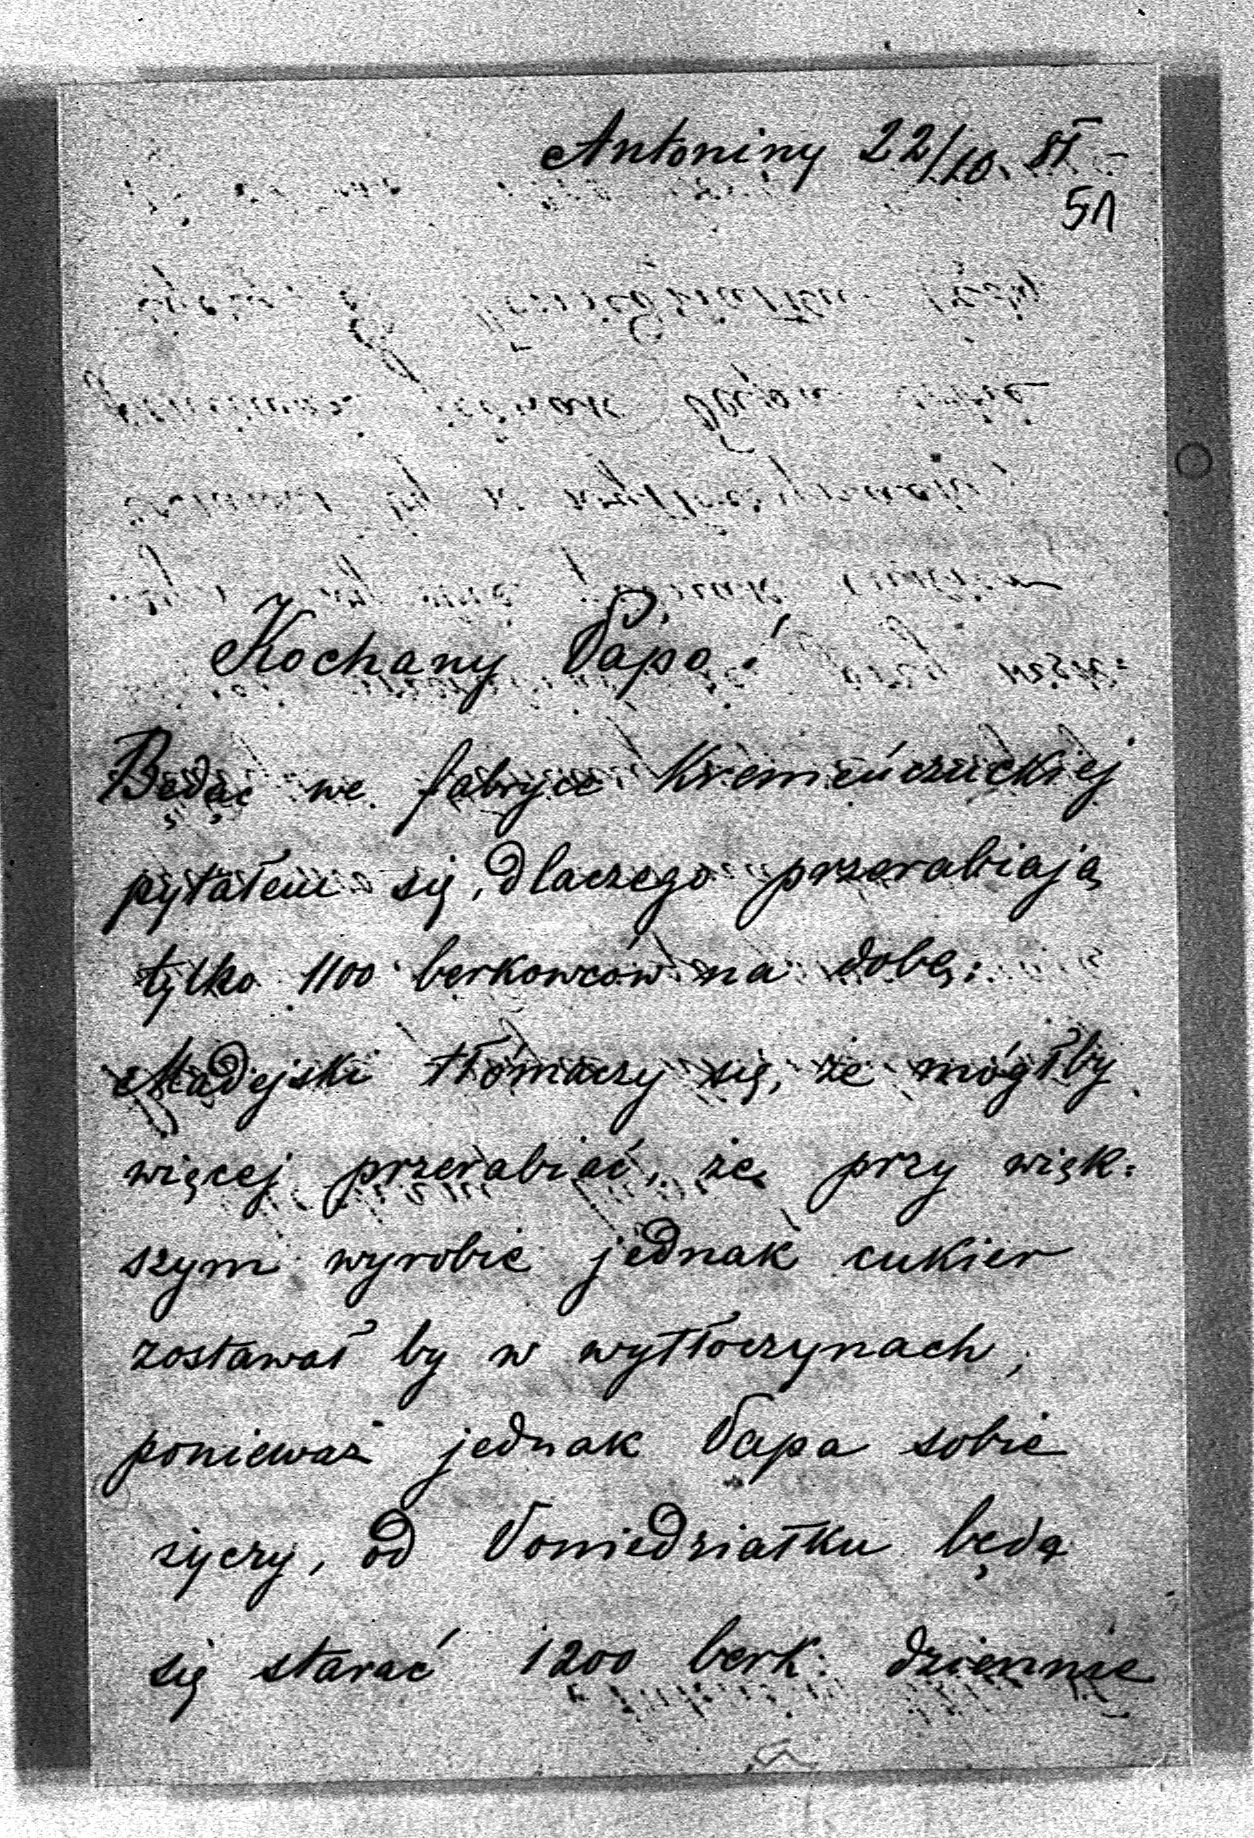 Antoniny 22/10. 87
51
Kochany Papo!
Będąc we fabryce Kremeńczuckiej
pytałem się, dlaczego przerabiają
tylko 1100 berkowców na dobę:
Madejski tłómaczy się, że mógłby
więcej przerabiać, że przy więk:
szym wyrobie jednak cukier
zostawał by w wytłoczynach,
ponieważ jednak Papa sobie
życzy, od Poniedziałku będą
się starać 1200 berk: dziennie